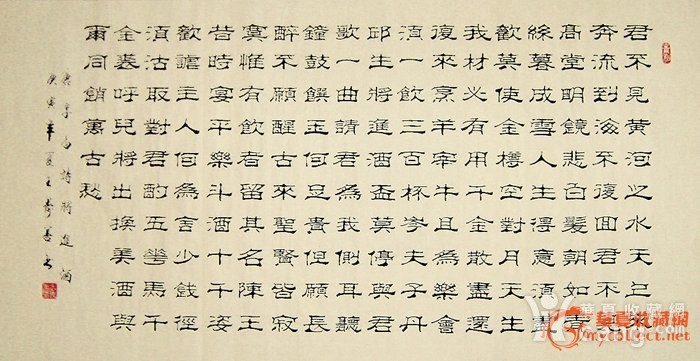 君不見黃河之水天上來
奔流到海不復回君不見
高堂明鏡悲白髮朝如青
絲暮成雪人生得意須盡
歡莫使金樽空對月天生
我材必有用千金散盡還
復來烹羊宰牛且為樂會
須一飲三百杯岑夫子丹
邱生將進酒盃莫停與君
歌一曲請君為我側耳聽
鐘鼓饌玉何足貴但願長
醉不願醒古來聖賢皆寂
寞惟有飲者留其名陳王
昔時宴平樂斗酒十千姿
歡謔主人何為舍少錢徑
須沽取對君酌五華馬千
金裘呼兒將出換美酒與
爾同銷萬古愁
唐李白詩將進酒
庚寅年夏王書
华夏收藏网